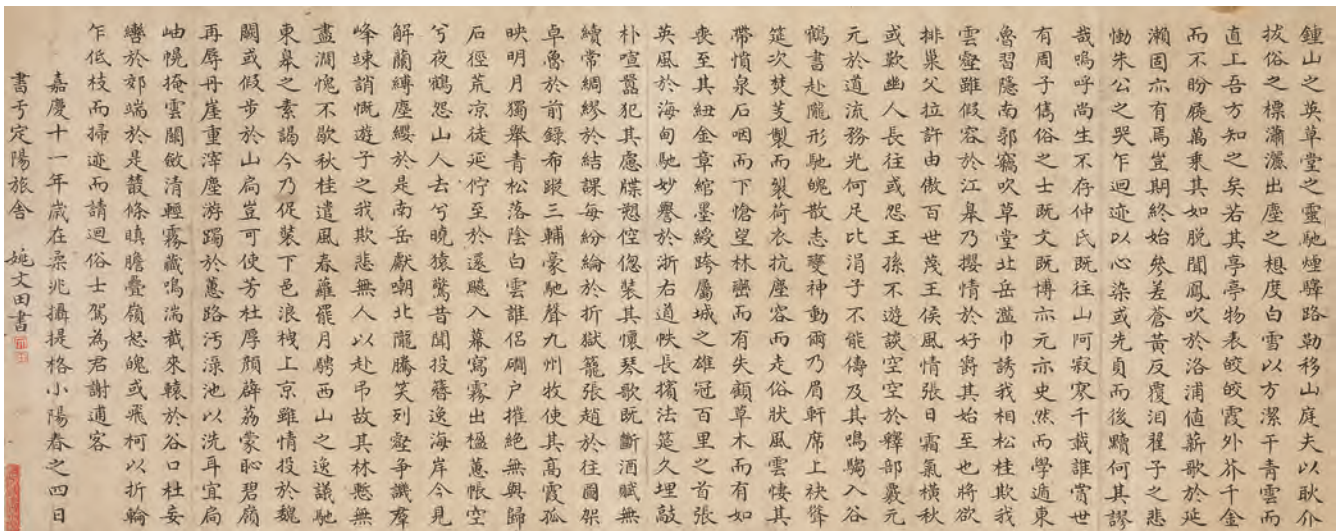 鍾山之英草堂之靈馳煙驛路勒移山庭夫以耿介
拔俗之標瀟灑出塵之想度白雪以方潔干青雲而
直上吾方知之矣若其亭亭物表皎皎霞外芥千金
而不盼屣萬乘其如脫聞鳳吹於洛浦值薪歌於延
瀨固亦有焉豈期終始參差蒼黃反覆泪翟子之悲
慟朱公之哭乍迴迹以心染或先貞而後黷何其謬
哉嗚呼尚生不存仲氏既往山阿寂寥千載誰賞世
有周子儁俗之士既文既博亦元亦史然而學遁東
魯習隱南郭竊吹草堂北岳濫巾誘我相松桂欺我
雲壑雖假容於江皋乃攖情於好爵其始至也將欲
排巢父拉許由傲百世蔑王侯風情張日霜氣橫秋
或歎幽人長往或怨王孫不遊談空空於釋部覈元
元於道流務光何足比涓子不能儔及其鳴騶入谷
鶴書赴隴形馳魄散志變神動爾乃眉軒席上袂聳
筵次焚芰製而裂荷衣抗塵容而走俗狀風雲悽其
帶憤泉石咽而下愴望林巒而有失顧草木而有如
喪至其紐金章綰墨綬跨屬城之雄冠百里之首張
英風於海甸馳妙譽於浙右道帙長擯法筵久埋敲
朴喧囂犯其慮牒愬倥傯裝其懷琴歌既斷酒賦無
續常綢繆於結課每紛綸於折獄籠張趙於往圖架
卓魯於前錄布蹤三輔豪馳聲九州牧使其高霞孤
映明月獨舉青松落陰白雲誰侶磵户摧絕無與歸
石徑荒涼徒延佇至於還飈入幕寫霧出楹蕙帳空
兮夜鶴怨山人去兮曉猿驚昔聞投簪逸海岸今見
解蘭縛塵纓於是南岳獻嘲北隴騰笑列壑爭譏羣
峰竦誚慨遊子之我欺悲無人以赴弔故其林慙無
盡澗愧不歇秋桂遣風春蘿罷月騁西山之逸議馳
東皋之素謁今乃促裝下邑浪栧上京雖情投於魏
闕或假步於山扃豈可使芳杜厚顏薜荔蒙恥碧嶺
再辱丹崖重滓塵游躅於蕙路汚淥池以洗耳宜扃
岫幌掩雲關斂清輕霧藏鳴湍截來轅於谷口杜妄
轡於郊端於是叢條瞋膽疊嶺怒魄或飛柯以折輪
乍低枝而掃迹而請迴俗士駕為君謝逋客
嘉慶十一年歲在柔兆攝提格小陽春之四日
書于定陽旅舍 姚文田書